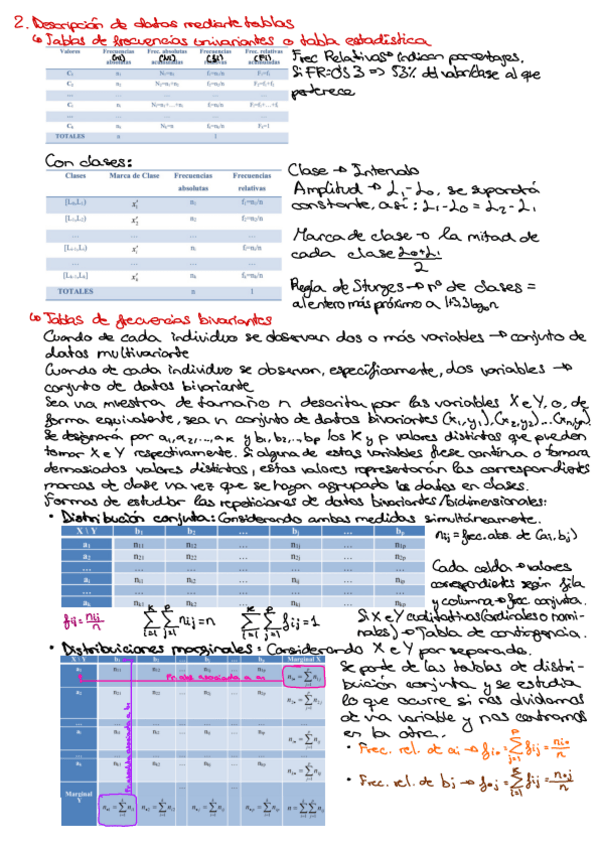 2. Descripción de datos mediante tablas
↳ Tablas de frecuencias univariantes o tabla estadística
Valores Frecuencias absolutas (ni) Frec. absolutas acumuladas (Ni) Frecuencias relativas (fi) Frec. relativas acumuladas (Fi)
C₁ n₁ N₁=n₁ f₁=n₁/n F₁=f₁
C₂ n₂ N₂=n₁+n₂ f₂=n₂/n F₂=f₁+f₂
... ... ... ... ...
Cᵢ nᵢ Nᵢ=n₁+...+nᵢ fᵢ=nᵢ/n Fᵢ=f₁+...+fᵢ
... ... ... ... ...
Cₖ nₖ Nₖ=n fₖ=nₖ/n Fₖ=1
TOTALES n 1
Frec Relativas → indican porcentajes.
Si FR=0'53 => 53% del valor/clase al que
pertenece
Con clases:
Clases Marca de Clase Frecuencias absolutas Frecuencias relativas
[L₀,L₁) x'₁ n₁ f₁=n₁/n
[L₁,L₂) x'₂ n₂ f₂=n₂/n
... ... ... ...
[Lᵢ₋₁,Lᵢ) x'ᵢ nᵢ fᵢ=nᵢ/n
... ... ... ...
[Lₖ₋₁,Lₖ] x'ₖ nₖ fₖ=nₖ/n
TOTALES n 1
Clase → Intervalo
Amplitud → L₁-L₀, se supondrá
constante, así: L₁-L₀ = L₂-L₁
Marca de clase → la mitad de
cada clase (L₀+L₁)/2
Regla de Sturges → nº de clases =
al entero más próximo a 1+3,3 log n
↳ Tablas de frecuencias bivariantes
Cuando de cada individuo se observan dos o más variables → conjunto de
datos multivariante
Cuando de cada individuo se observan, específicamente, dos variables →
conjunto de datos bivariante
Sea una muestra de tamaño n descrita por las variables X e Y, o, de
forma equivalente, sea n conjunto de datos bivariantes (x₁,y₁),(x₂,y₂)...(xₙ,yₙ).
Se designará por a₁,a₂,...,aₖ y b₁,b₂,...,bp los K y p valores distintos que pueden
tomar X e Y respectivamente. Si alguna de estas variables fuese continua o tomara
demasiados valores distintos, estos valores representarán las correspondientes
marcas de clase una vez que se hayan agrupado los datos en clases.
Formas de estudiar las repeticiones de datos bivariantes/bidimensionales:
• Distribución conjunta: Considerando ambas medidas simultáneamente.
X \ Y b₁ b₂ ... bⱼ ... bₚ
a₁ n₁₁ n₁₂ ... n₁ⱼ ... n₁ₚ
a₂ n₂₁ n₂₂ ... n₂ⱼ ... n₂ₚ
... ... ... ... ... ... ...
aᵢ nᵢ₁ nᵢ₂ ... nᵢⱼ ... nᵢₚ
... ... ... ... ... ... ...
aₖ nₖ₁ nₖ₂ ... nₖⱼ ... nₖₚ
nij = frec. abs. de (ai, bj)
Cada celda → valores
correspondients según fila
y columna → frec. conjunta.
fij = nij/n ∑ᵢ₌₁ᴷ ∑ⱼ₌₁ᵖ nij = n ∑ᵢ₌₁ᴷ ∑ⱼ₌₁ᵖ fij = 1
Si X e Y cualitativas (ordinales o nomi-
nales) → Tabla de contingencia.
• Distribuciones marginales: Considerando X e Y por separado.
Se parte de las tablas de distri-
bución conjunta y se estudia
lo que ocurre si nos olvidamos
de una variable y nos centramos
en la otra.
• Frec. rel. de ai → fi• = ∑ⱼ₌₁ᵖ fij = ni•/n
• Frec. rel. de bj → f•j = ∑ᵢ₌₁ᴷ fij = n•j/n